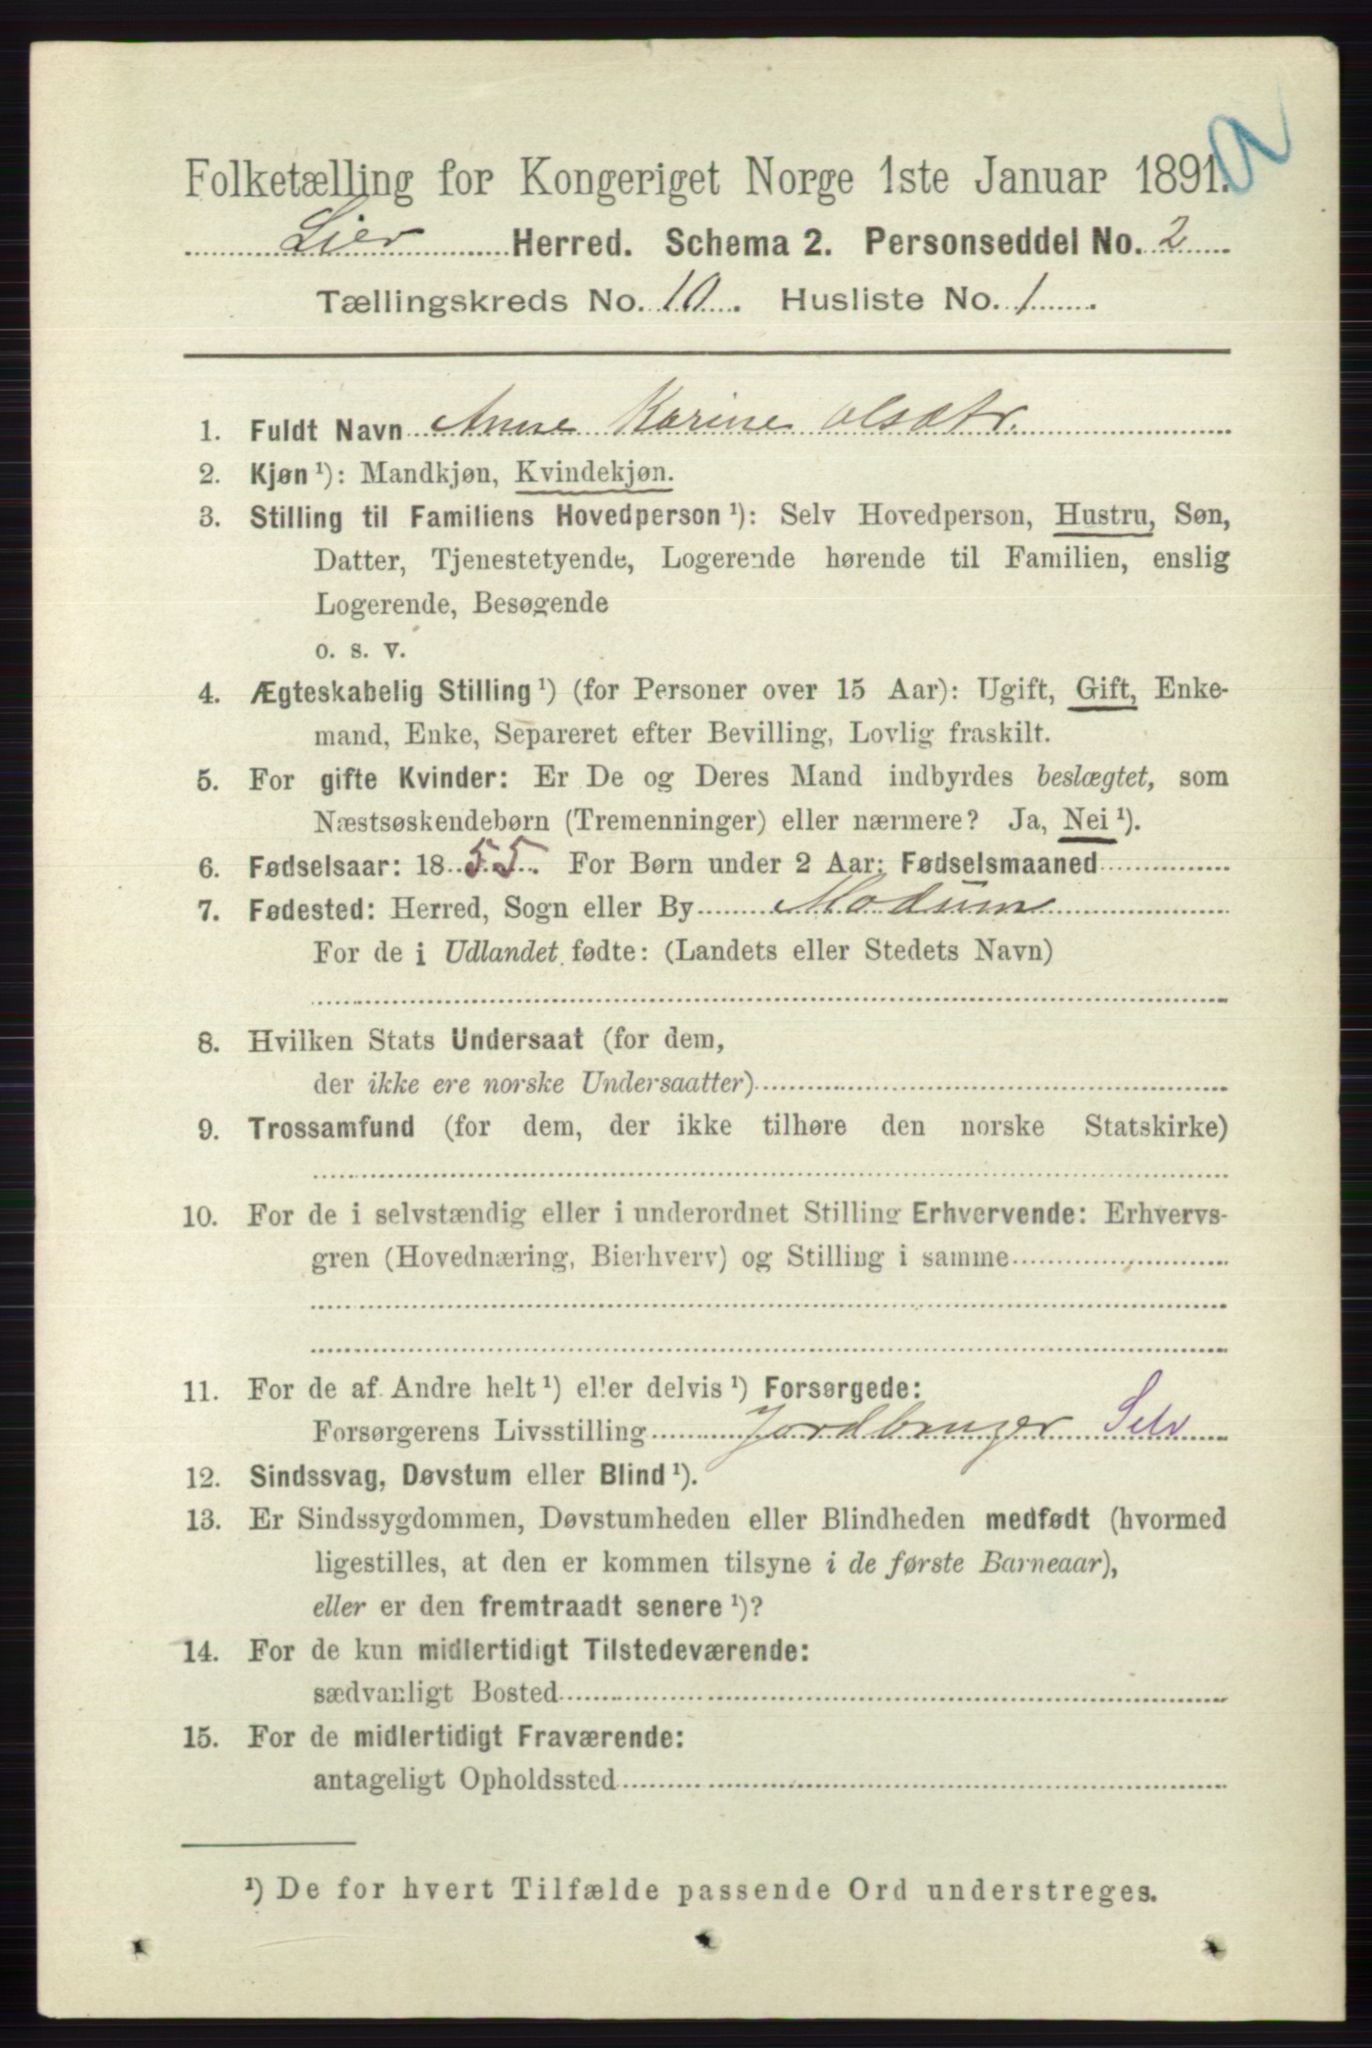 Folketælling for Kongeriget Norge 1ste Januar 1891.
Lier Herred. Schema 2. Personseddel No. 2
Tællingskreds No. 10. Husliste No. 1
1. Fuldt Navn Anne Karine Olsdtr.
2. Kjøn ¹): Mandkjøn, Kvindekjøn.
3. Stilling til Familiens Hovedperson ¹): Selv Hovedperson, Hustru, Søn,
Datter, Tjenestetyende, Logerende hørende til Familien, enslig
Logerende, Besøgende
o. s. v.
4. Ægteskabelig Stilling ¹) (for Personer over 15 Aar): Ugift, Gift, Enke-
mand, Enke, Separeret efter Bevilling, Lovlig fraskilt.
5. For gifte Kvinder: Er De og Deres Mand indbyrdes beslægtet, som
Næstsøskendebørn (Tremenninger) eller nærmere? Ja, Nei ¹).
6. Fødselsaar: 1855. For Børn under 2 Aar: Fødselsmaaned
7. Fødested: Herred, Sogn eller By Modum
For de i Udlandet fødte: (Landets eller Stedets Navn)
8. Hvilken Stats Undersaat (for dem,
der ikke ere norske Undersaatter)
9. Trossamfund (for dem, der ikke tilhøre den norske Statskirke)
10. For de i selvstændig eller i underordnet Stilling Erhvervende: Erhvervs-
gren (Hovednæring, Bierhverv) og Stilling i samme
11. For de af Andre helt ¹) eller delvis ¹) Forsørgede:
Forsørgerens Livsstilling Jordbruger Selv
12. Sindssvag, Døvstum eller Blind ¹).
13. Er Sindssygdommen, Døvstumheden eller Blindheden medfødt (hvormed
ligestilles, at den er kommen tilsyne i de første Barneaar),
eller er den fremtraadt senere ¹)?
14. For de kun midlertidigt Tilstedeværende:
sædvanligt Bosted
15. For de midlertidigt Fraværende:
antageligt Opholdssted
¹) De for hvert Tilfælde passende Ord understreges.